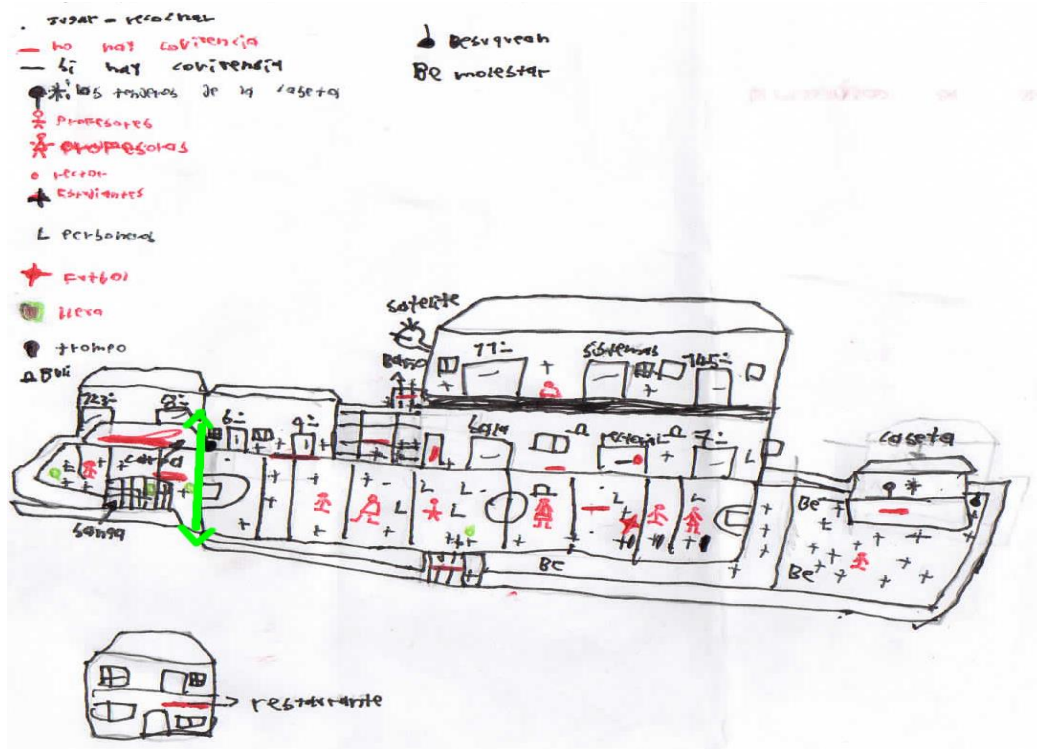 . Jugar - recochar
no hay covirencia
si hay covirencia
los tenderos de la caseta
Profesores
Profesoras
rector
Estudiantes
L personas
Futbol
trompo
Buli
Besuquean
Be molestar
satelite
Baño
11-
sistemas
caseta
6-
9-
sala
7-
Be
Be
Be
restaurante